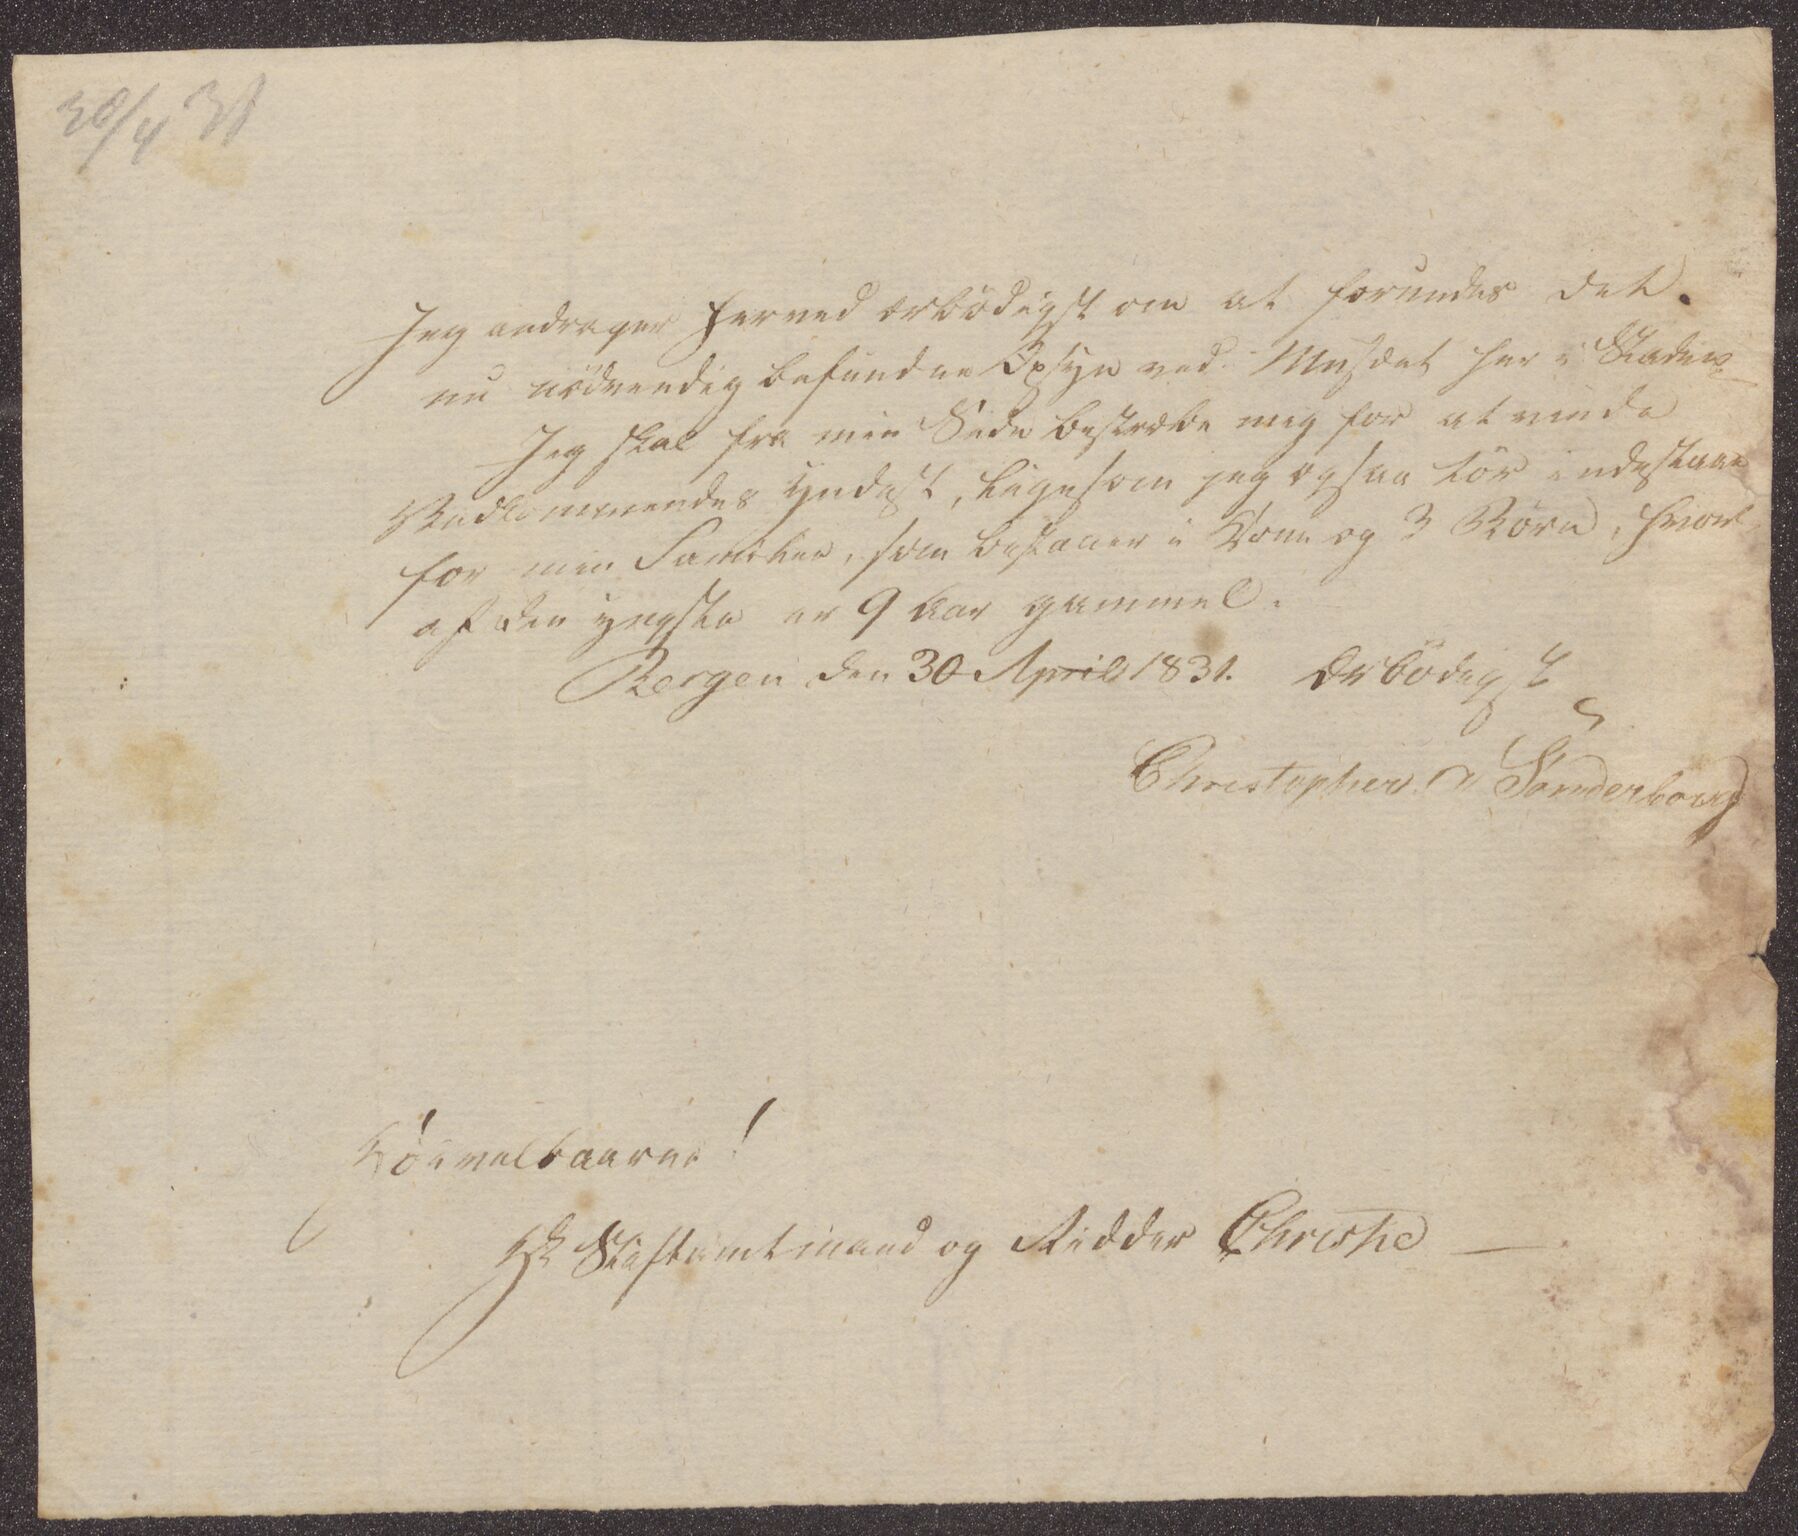 30/4 31
Jeg andrager herved ærbödigst om at forundes det
nu nödvendig befundne Opsyn ved Musæet her i Staden.
Jeg skal fra min Side bestræbe mig for at vinde
Vedkommendes Yndest, ligesom jeg ogsaa tör indestaae
for min Familie, som bestaaer i Kone og 3 Börn, hvor
af den yngste er 9 Aar gammel.
Bergen den 30 April 1831. Ærbödigst
Christopher Sonderborg
Höivelbaarne!
Hr Stiftamtmand og Ridder Christie